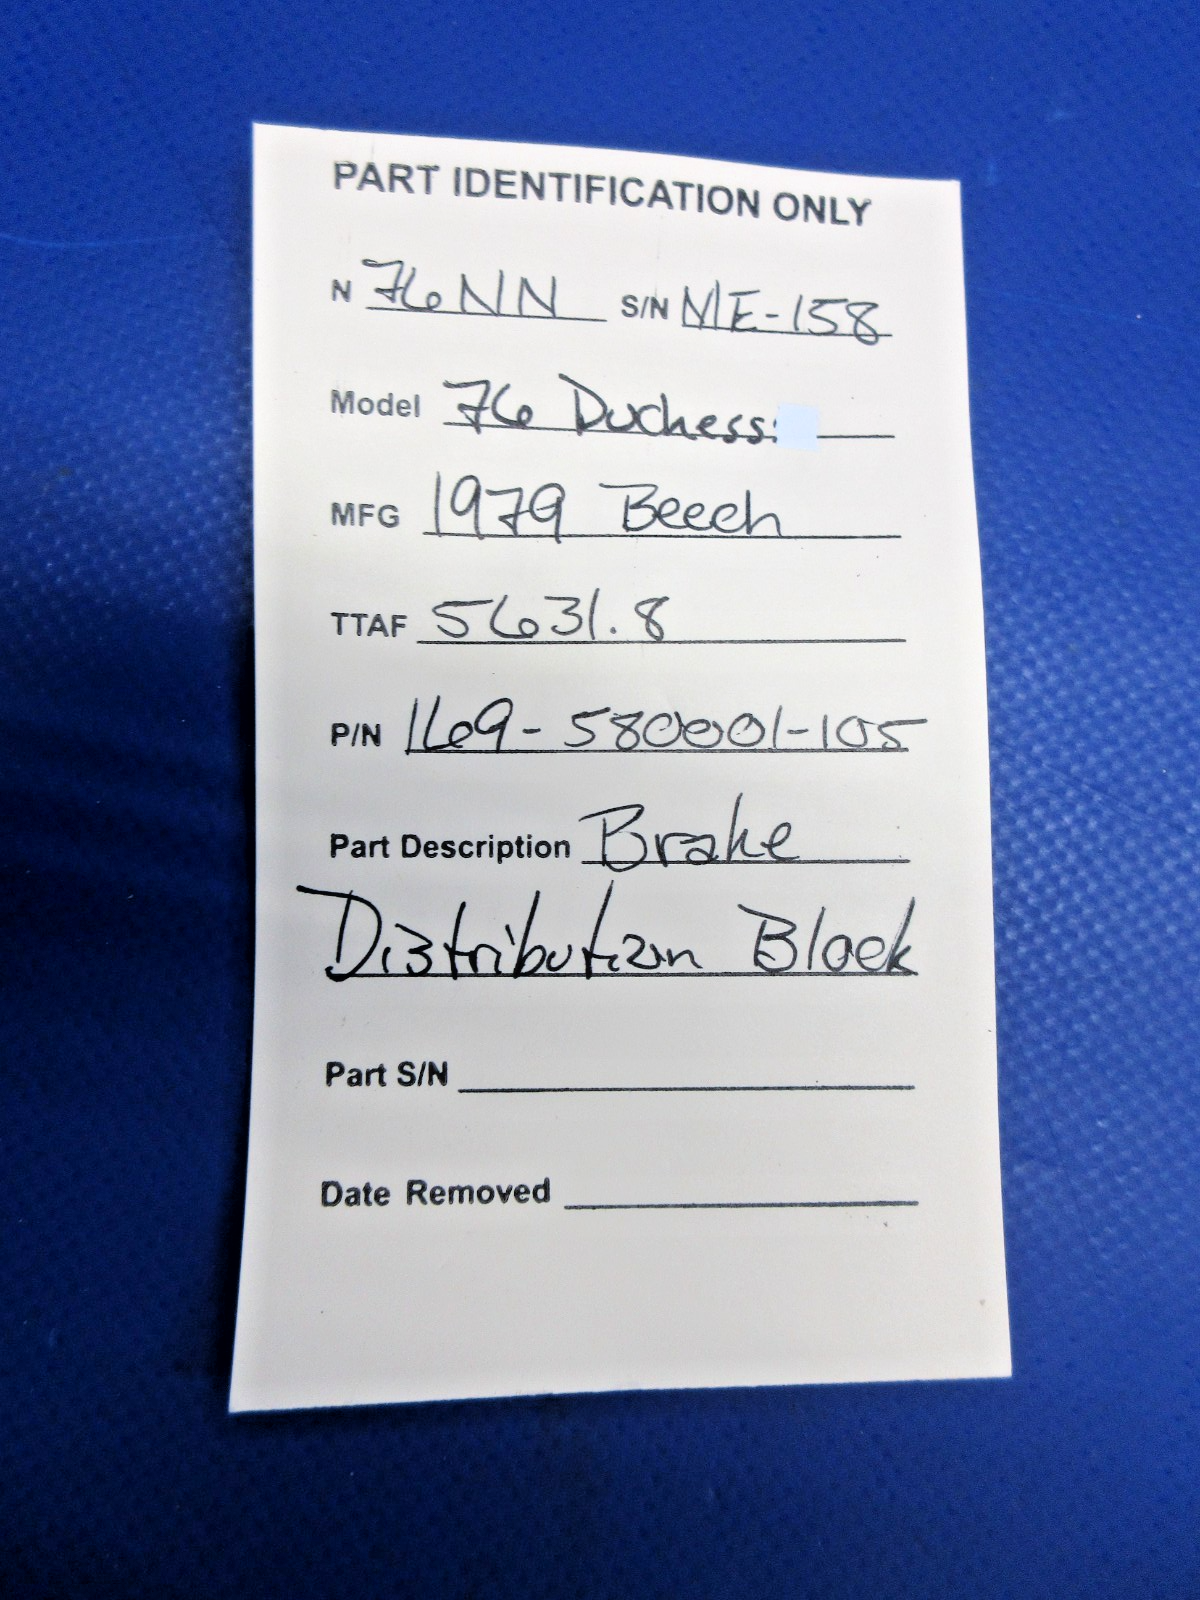 PART IDENTIFICATION ONLY
N 76NN S/N ME-158
Model 76 Duchess
MFG 1979 Beech
TTAF 5631.8
P/N 169-580001-105
Part Description Brake
Distribution Block
Part S/N
Date Removed